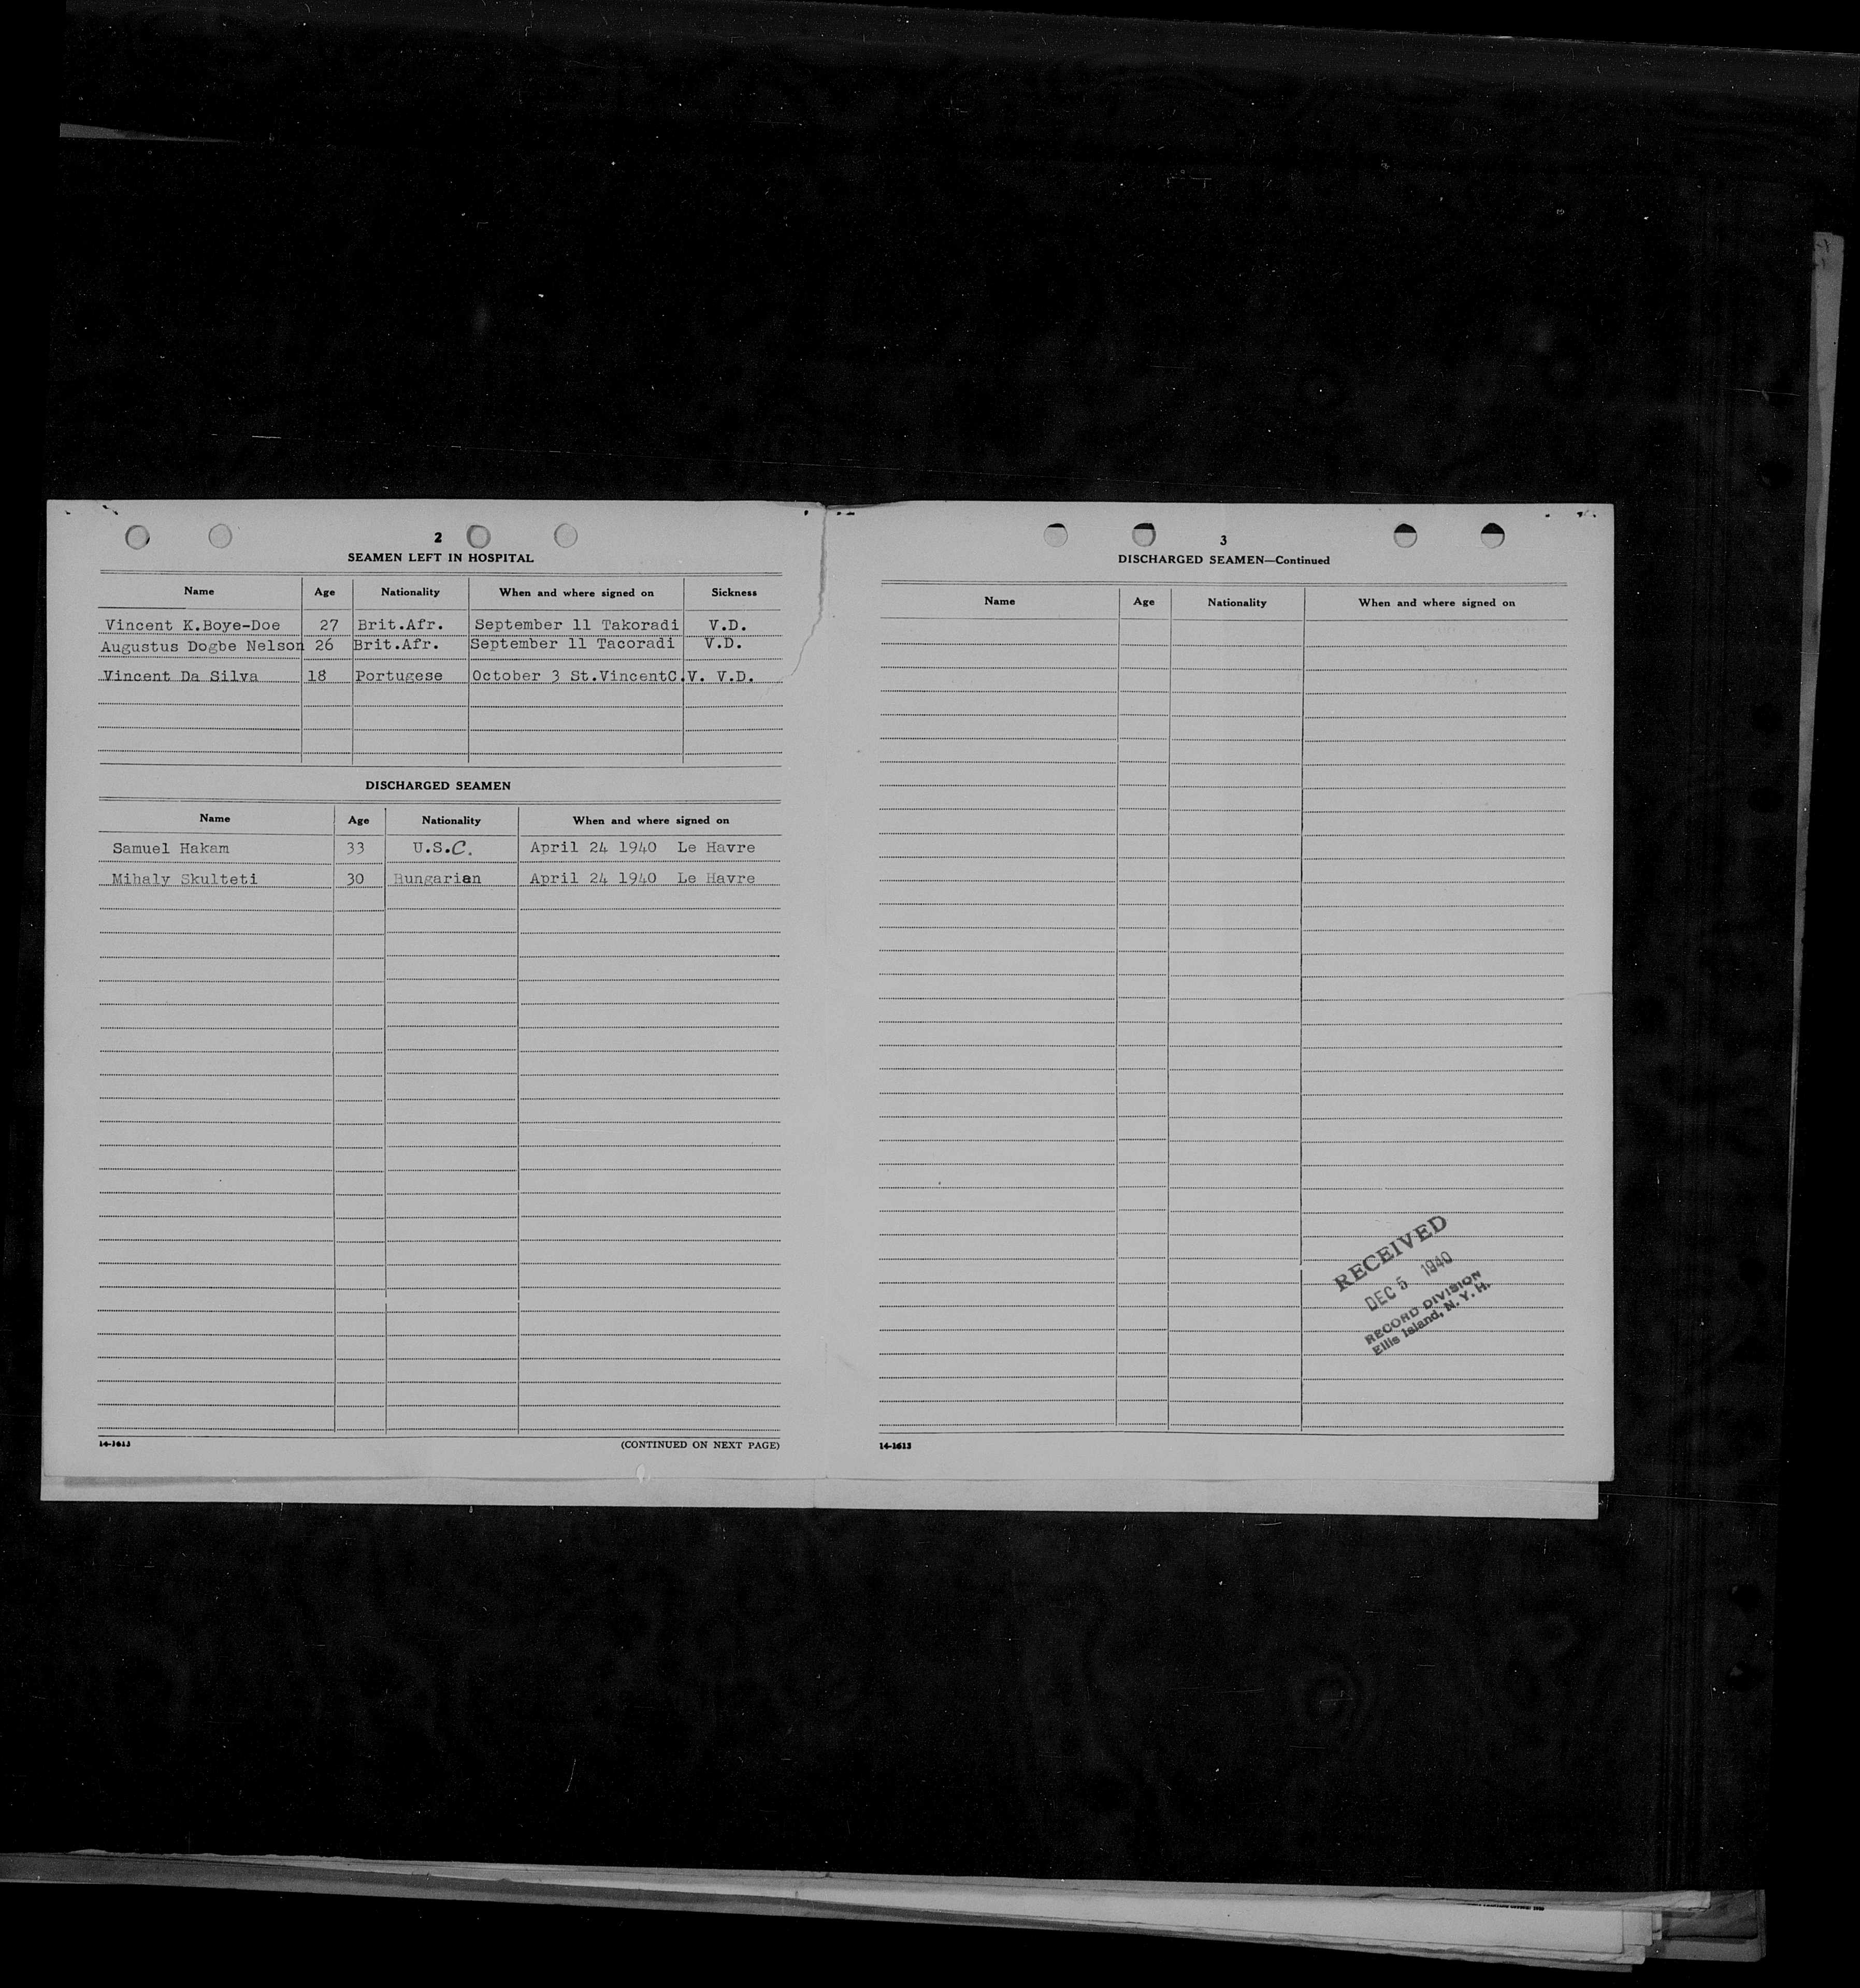 2
SEAMEN LEFT IN HOSPITAL
Name Age Nationality When and where signed on Sickness
Vincent K.Boye-Doe 27 Brit.Afr. September 11 Takoradi V.D.
Augustus Dogbe Nelson 26 Brit.Afr. September 11 Tacoradi V.D.
Vincent Da Silva 18 Portugese October 3 St.VincentC.V. V.D.
DISCHARGED SEAMEN
Name Age Nationality When and where signed on
Samuel Hakam 33 U.S.C. April 24 1940 Le Havre
Mihaly Skulteti 30 Hungarian April 24 1940 Le Havre
14-1613 (CONTINUED ON NEXT PAGE)
3
DISCHARGED SEAMEN—Continued
Name Age Nationality When and where signed on
RECEIVED
DEC 5 1940
RECORD DIVISION
Ellis Island, N. Y. H.
14-1613